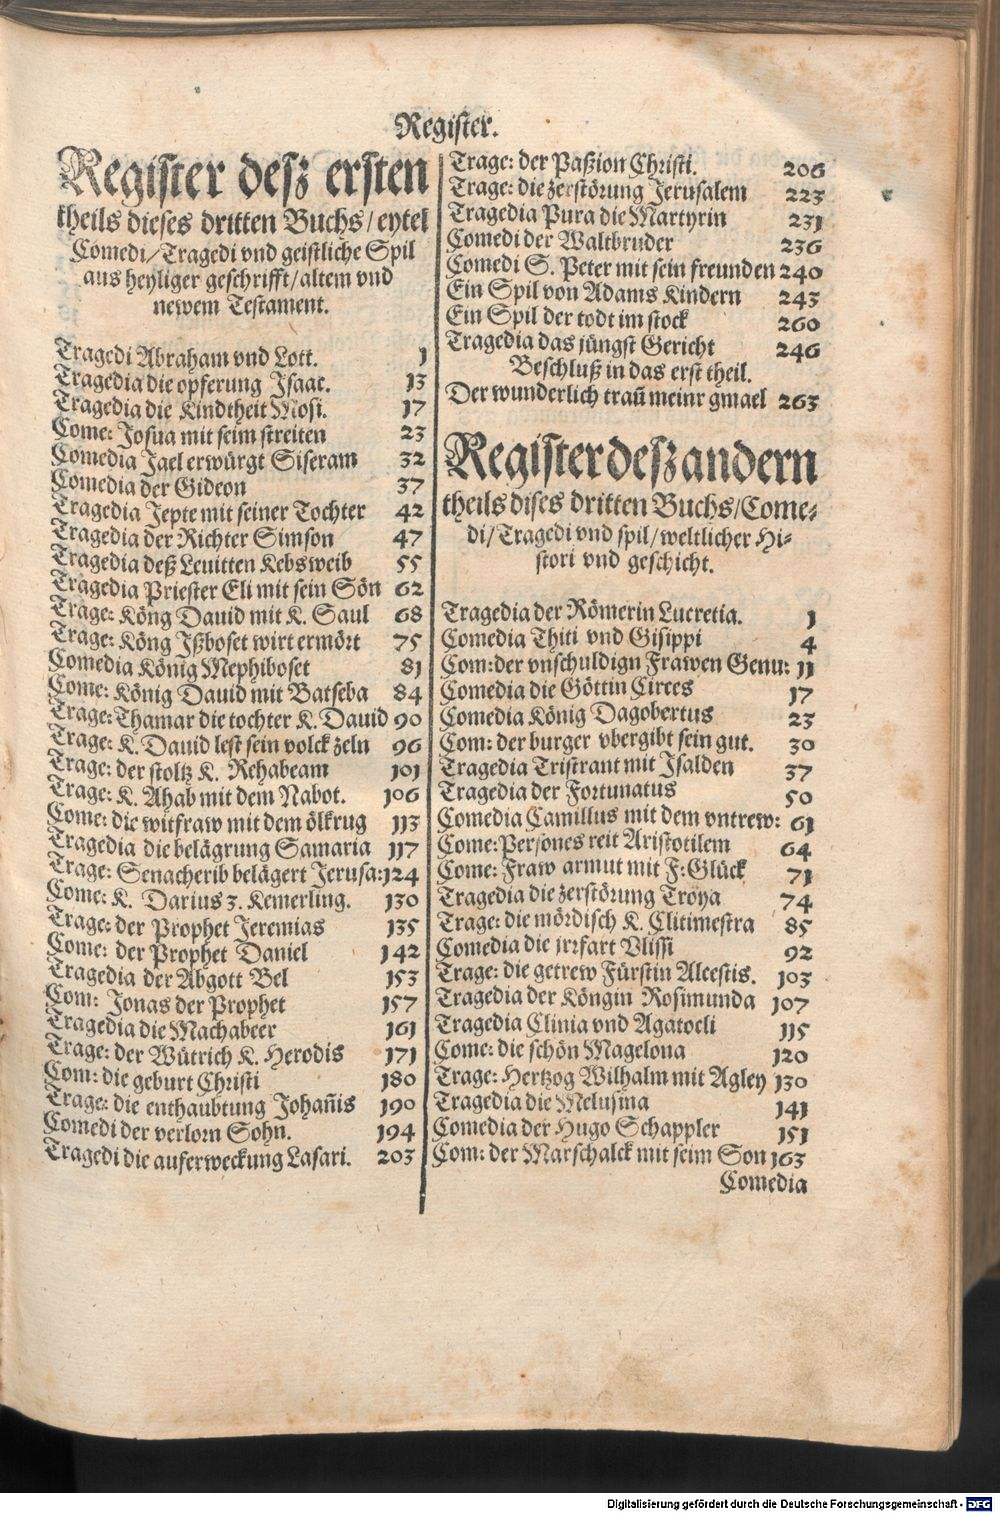 Register.
Register desz ersten
theils dieses dritten Buchs/eytel
Comedi/Tragedi vnd geistliche Spil
aus heyliger geschrifft/altem vnd
newem Testament.
Tragedi Abraham vnd Lott. 1
Tragedia die opferung Isaac. 13
Tragedia die Kindtheit Mosi. 17
Come: Josua mit seim streiten 23
Comedia Jael erwürgt Siseram 32
Comedia der Gideon 37
Tragedia Jepte mit seiner Tochter 42
Tragedia der Richter Simson 47
Tragedia deß Leuitten Kebsweib 55
Tragedia Priester Eli mit sein Sön 62
Trage: Köng Dauid mit K. Saul 68
Trage: Köng Ißboset wirt ermört 75
Comedia König Mephiboset 81
Come: König Dauid mit Batseba 84
Trage: Thamar die tochter K. Dauid 90
Trage: K. Dauid lest sein volck zeln 96
Trage: der stoltz K. Rehabeam 101
Trage: K. Ahab mit dem Nabot. 106
Come: die witfraw mit dem ölkrug 113
Tragedia die belägrung Samaria 117
Trage: Senacherib belägert Jerusa: 124
Come: K. Darius 3. Kemerling. 130
Trage: der Prophet Jeremias 135
Come: der Prophet Daniel 142
Tragedia der Abgott Bel 153
Com: Jonas der Prophet 157
Tragedia die Machabeer 161
Trage: der Wütrich K. Herodis 171
Com: die geburt Christi 180
Trage: die enthaubtung Johan̄is 190
Comedi der verlorn Sohn. 194
Tragedi die auferweckung Lasari. 203
Trage: der Paßion Christi. 206
Trage: die zerstörung Jerusalem 223
Tragedia Pura die Martyrin 231
Comedi der Waltbruder 236
Comedi S. Peter mit sein freunden 240
Ein Spil von Adams Kindern 243
Ein Spil der todt im stock 260
Tragedia das jüngst Gericht 246
Beschluß in das erst theil.
Der wunderlich trau̅ meinr gmael 263
Register desz andern
theils dises dritten Buchs/Come-
di/Tragedi vnd spil/weltlicher Hi-
stori vnd geschicht.
Tragedia der Römerin Lucretia. 1
Comedia Thiti vnd Gisippi 4
Com: der vnschuldign Frawen Genu: 11
Comedia die Göttin Circes 17
Comedia König Dagobertus 23
Com: der burger vbergibt sein gut. 30
Tragedia Tristrant mit Isalden 37
Tragedia der Fortunatus 50
Comedia Camillus mit dem vntrew: 61
Come: Persones reit Aristotilem 64
Come: Fraw armut mit F: Glück 71
Tragedia die zerstörung Troya 74
Trage: die mördisch K. Clitimestra 85
Comedia die jrrfart Vlissi 92
Trage: die getrew Fürstin Alcestis. 103
Tragedia der Köngin Rosimunda 107
Tragedia Clinia vnd Agatocli 115
Come: die schön Magelona 120
Trage: Hertzog Wilhalm mit Agley 130
Tragedia die Melusina 141
Comedia der Hugo Schappler 151
Com: der Marschalck mit seim Son 163
Comedia
Digitalisierung gefördert durch die Deutsche Forschungsgemeinschaft - DFG